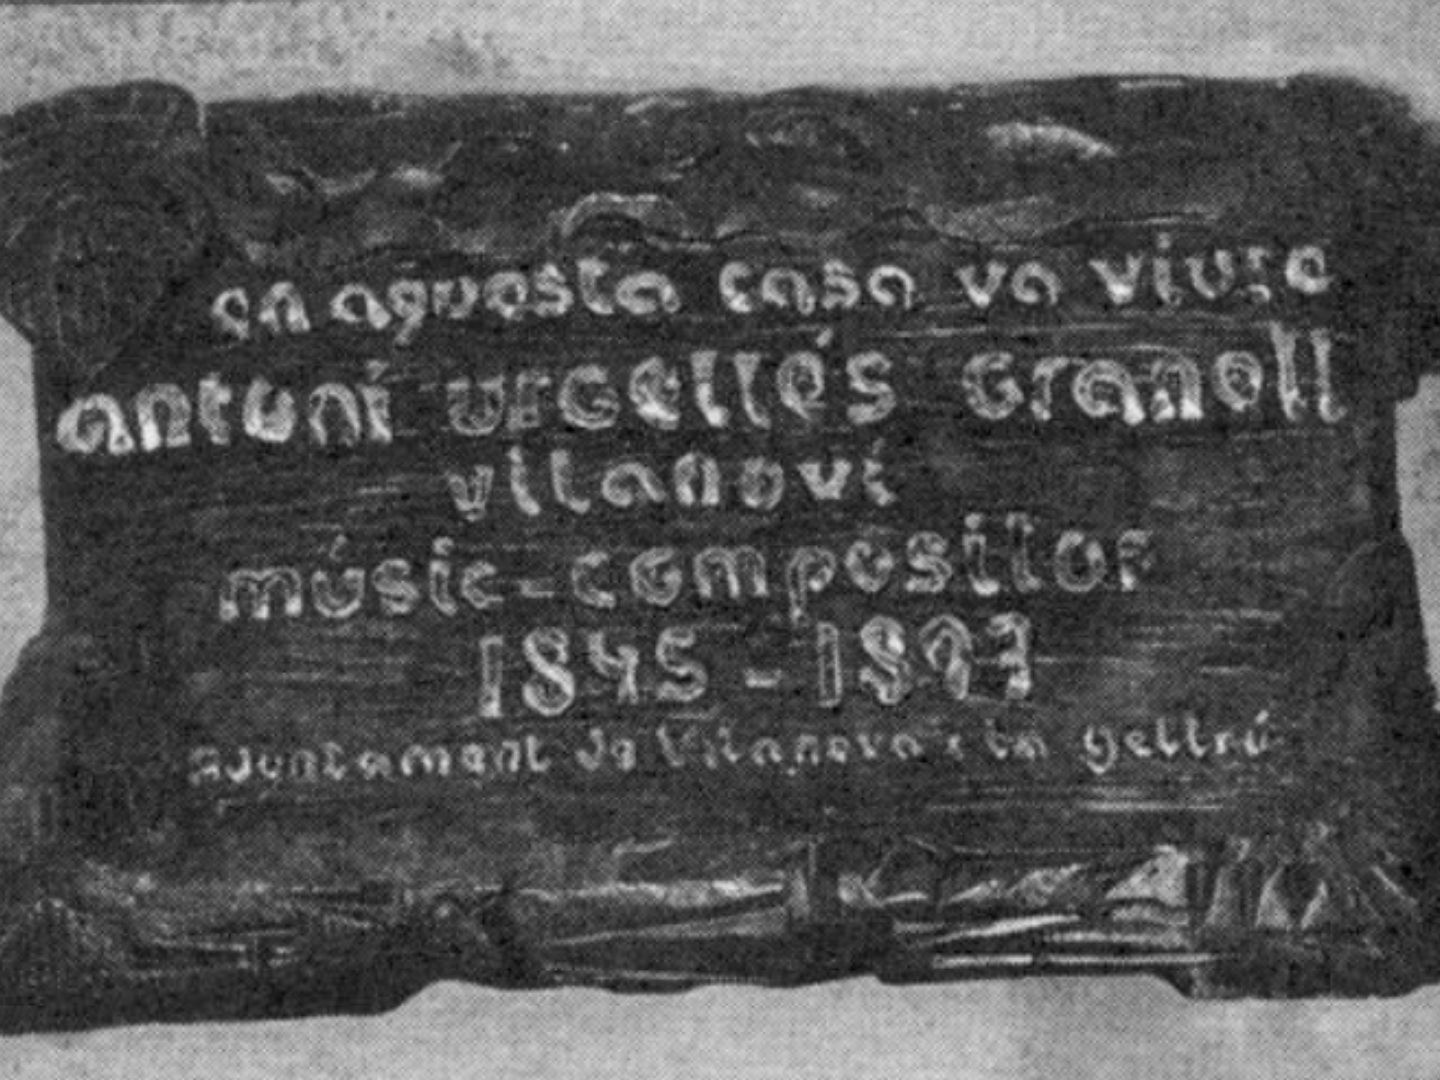 en aquesta casa va viure
antoni urgellés granell
vilanoví
músic-compositor
1845-1897
ajuntament de Vilanova i la geltrú